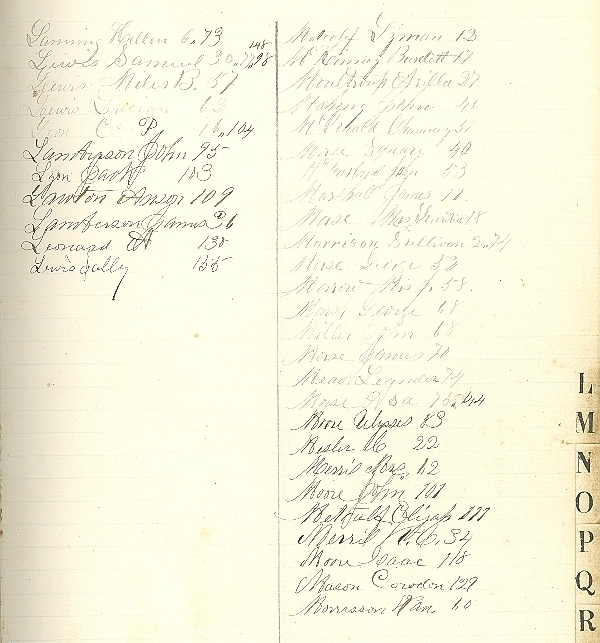 Lanning Hellen 6.73
Lewis Samuel 30.77.98 148
Lewis Miles B. 57
Lewis 63
Lyon P 16.104
Lamberson John 95
Lyon Jack 103
Lawton Anson 109
Lamberson James 36
Leonard A 138
Lewis Sally 155
Metcalf Lyman 13
McKinney Burdett 17
Moulthrop Zilla 27
Mahony John 41
McDonald Chauncy 51
Morse Square 40
McFarland John 53
Marshall James 11
Morse 18
Morrison Sullivan 2.74
Morse George 53
Morrow Mrs J. 58.
Morse George 68
Miller John 68
Morse James 70
Mead Leander 74
Morse Asa 144
Moore Ulysses 83
22
Merris 62
Moore John 101
Metcalf Elijah 111
Merrill H.C. 34
Moore Isaac 118
Mason Corodon 129
Morrisson Wm 60
L
M
N
O
P
Q
R